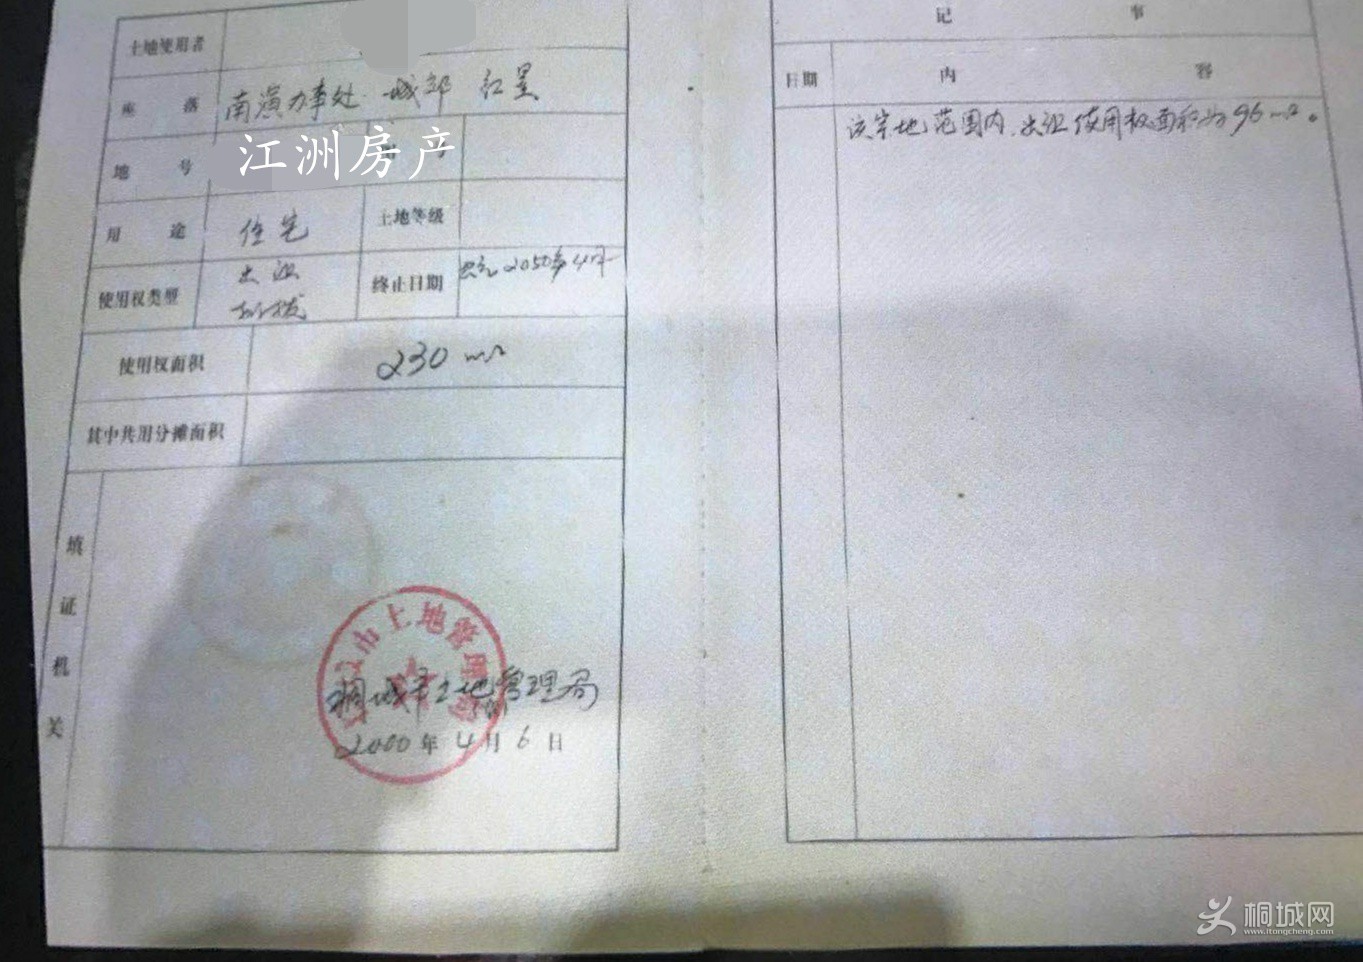 土地使用者
座 落 南演办事处 城郊 红星
地 号
江洲房产
用 途 住宅 土地等级
使用权类型 出让 划拨 终止日期 2050年4月
使用权面积 230 m²
其中共用分摊面积
填证机关
市土地管理局
桐城市土地管理局
2000年4月6日
记 事
日期 内 容
该宗地范围内,出让使用权面积为96m²。
桐城网
www.itongcheng.com